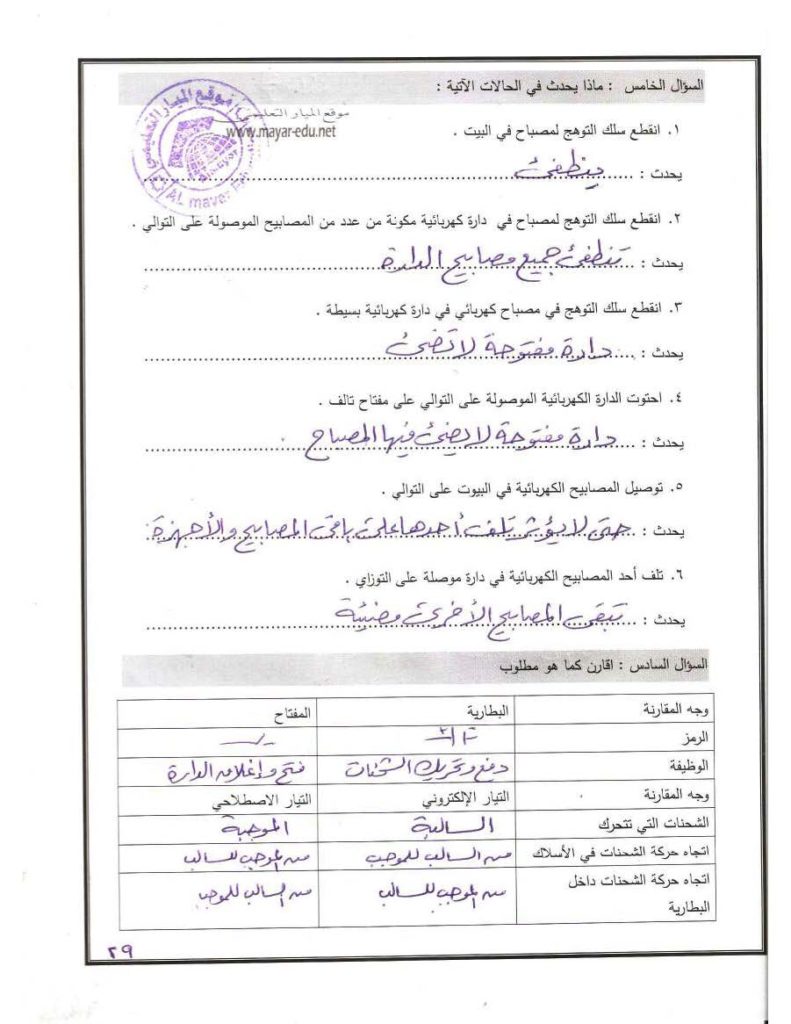 السؤال الخامس : ماذا يحدث في الحالات الآتية :
موقع الميار التعليمي
www.mayar-edu.net
موقع الميار التعليمي
AL mayar
١. انقطع سلك التوهج لمصباح في البيت .
يحدث : ينطفئ
٢. انقطع سلك التوهج لمصباح في دارة كهربائية مكونة من عدد من المصابيح الموصولة على التوالي .
يحدث : تنطفئ جميع مصابيح الدارة
٣. انقطع سلك التوهج في مصباح كهربائي في دارة كهربائية بسيطة .
يحدث : دارة مفتوحة لا تضئ
٤. احتوت الدارة الكهربائية الموصولة على التوالي على مفتاح تالف .
يحدث : دارة مفتوحة لا يضئ فيها المصباح .
٥. توصيل المصابيح الكهربائية في البيوت على التوالي .
يحدث : حتى لا يؤثر تلف أحدها على باقي المصابيح والأجهزة
٦. تلف أحد المصابيح الكهربائية في دارة موصلة على التوزاي .
يحدث : تبقى المصابيح الأخرى مضيئة
السؤال السادس : اقارن كما هو مطلوب
وجه المقارنة البطارية المفتاح
الرمز
الوظيفة دفع وتحريك الشحنات فتح وإغلاق الدارة
وجه المقارنة التيار الإلكتروني التيار الاصطلاحي
الشحنات التي تتحرك السالبة الموجبة
اتجاه حركة الشحنات في الأسلاك من السالب للموجب من الموجب للسالب
اتجاه حركة الشحنات داخل البطارية من الموجب للسالب من السالب للموجب
٢٩